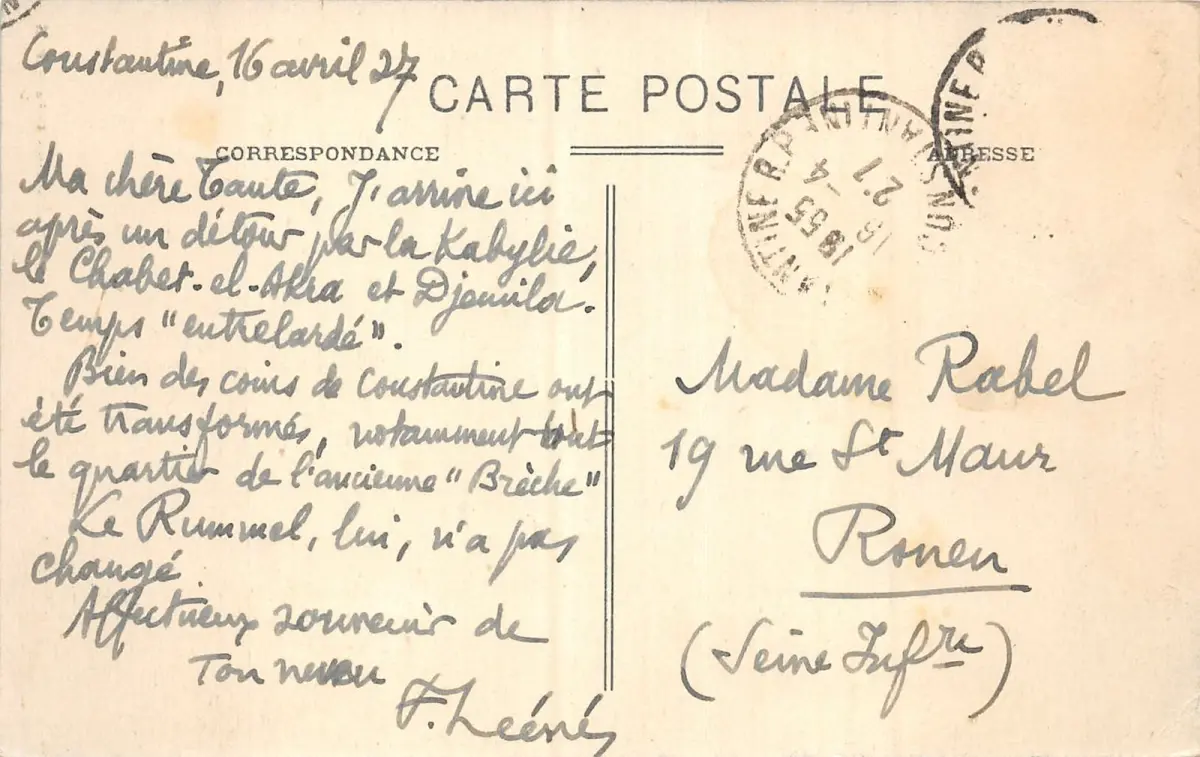 Constantine, 16 avril 27
CARTE POSTALE
CORRESPONDANCE
ADRESSE
Ma chère Tante, J'arrive ici
après un détour par la Kabylie,
le Chabet-el-Akra et Djemila.
Temps "entrelardé".
Bien des coins de Constantine ont
été transformés, notamment tout
le quartier de l'ancienne "Brèche"
Le Rummel, lui, n'a pas
changé.
Affectueux souvenir de
Ton neveu
F.
Madame Rabel
19 rue St Maur
Rouen
(Seine Infre)
CONSTANTINE R.P.
18 55
16 -4
27
TINE R